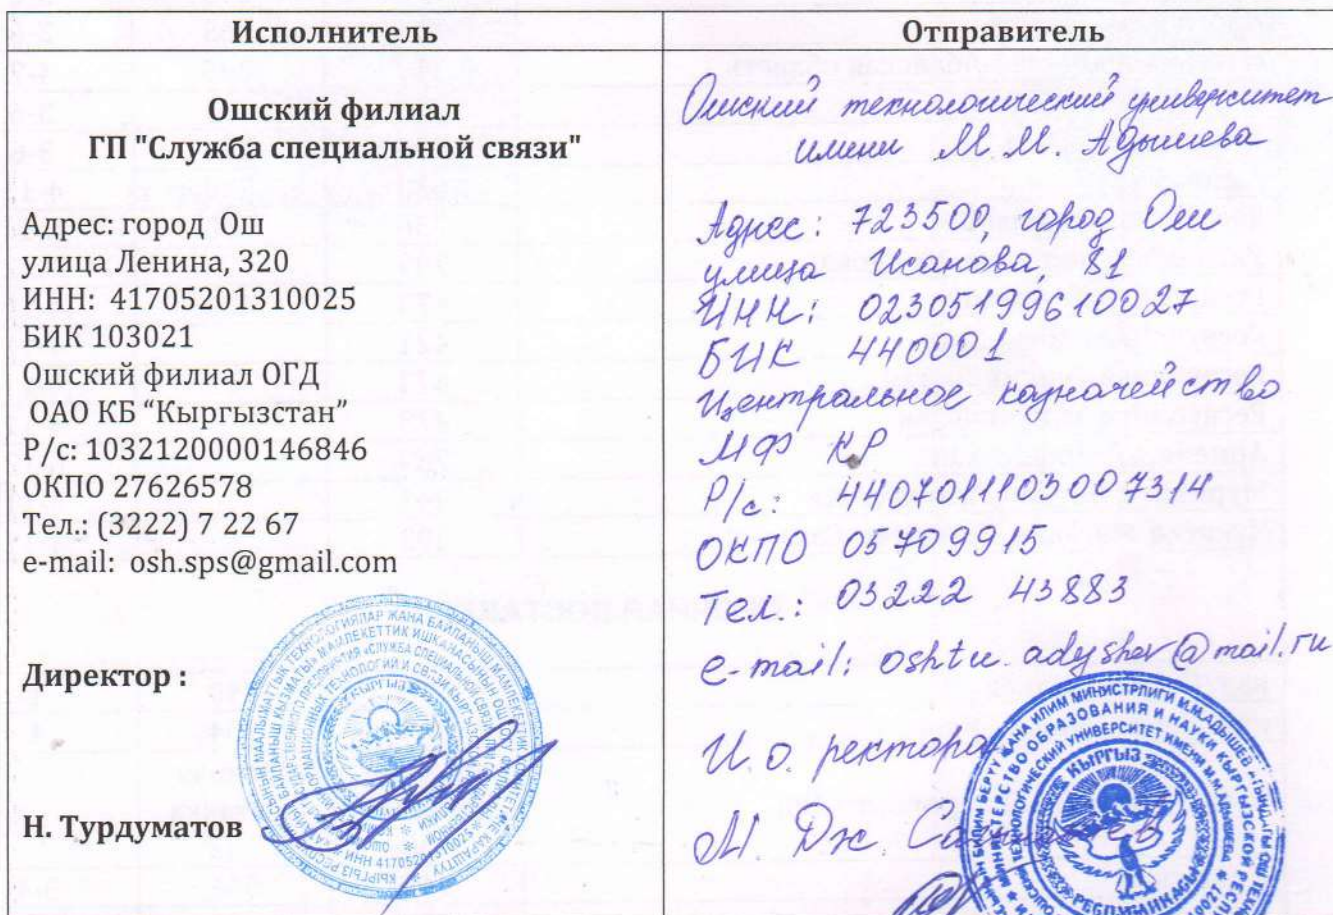 Исполнитель
Ошский филиал
ГП "Служба специальной связи"
Адрес: город Ош
улица Ленина, 320
ИНН: 41705201310025
БИК 103021
Ошский филиал ОГД
ОАО КБ “Кыргызстан”
Р/с: 1032120000146846
ОКПО 27626578
Тел.: (3222) 7 22 67
e-mail: osh.sps@gmail.com
Директор :
Н. Турдуматов
Отправитель
Ошский технологический университет
имени М. М. Адышева
Адрес: 723500, город Ош
улица Исанова, 81
ИНН: 02305199610027
БИК 440001
Центральное казначейство
МФ КР
Р/с: 4407011103007314
ОКПО 05709915
Тел.: 03222 43883
e-mail: oshtu.adyshev@mail.ru
И. о. ректора
М. Дж.
КЫРГЫЗ
РЕСПУБЛИКАСЫ